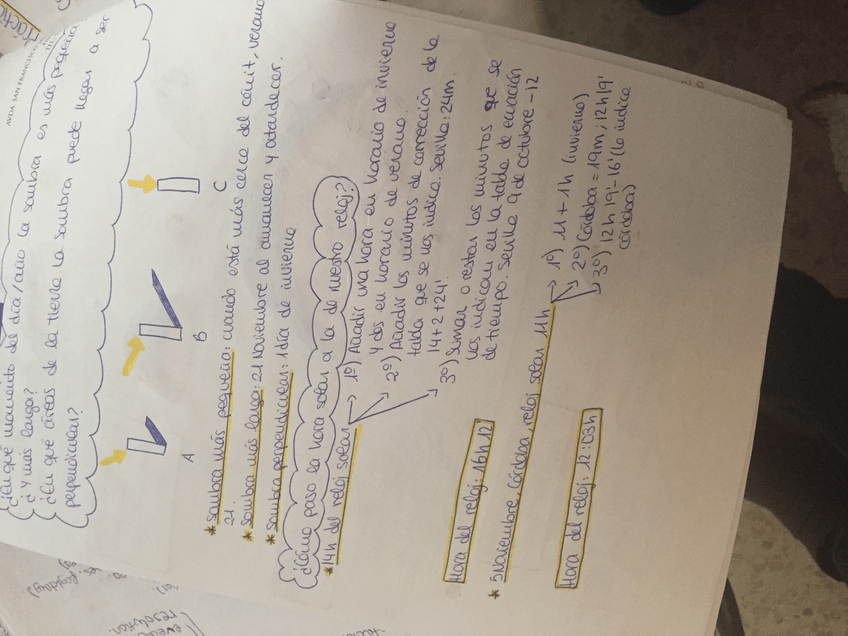 ¿En qué momento del día/año la sombra es más pequeña
¿Y más larga?
¿En qué áreas de la tierra la sombra puede llegar a ser
perpendicular?
A
B
C
* Sombra más pequeña: cuando está más cerca del cénit, verano
21.
* Sombra más larga: 21 Noviembre al amanecer y atardecer.
* Sombra perpendicular: 1 día de invierno
¿Cómo paso la hora solar a la de nuestro reloj?
* 14h del reloj solar
1º) Añadir una hora en horario de invierno
y dos en horario de verano.
2º) Añadir los minutos de corrección de la
tabla que se nos indica. Sevilla: 24m.
14+2+24'
3º) Sumar o restar los minutos que se
nos indican en la tabla de ecuación
de tiempo. Sevilla 9 de octubre -12
Hora del reloj: 16h 12'
* 5 Noviembre, Córdoba, reloj solar 11h
1º) 11 + 1h (invierno)
2º) Córdoba = 19m; 12h 19'
3º) 12h 19' - 16' (lo indica
Córdoba)
Hora del reloj: 12:03h